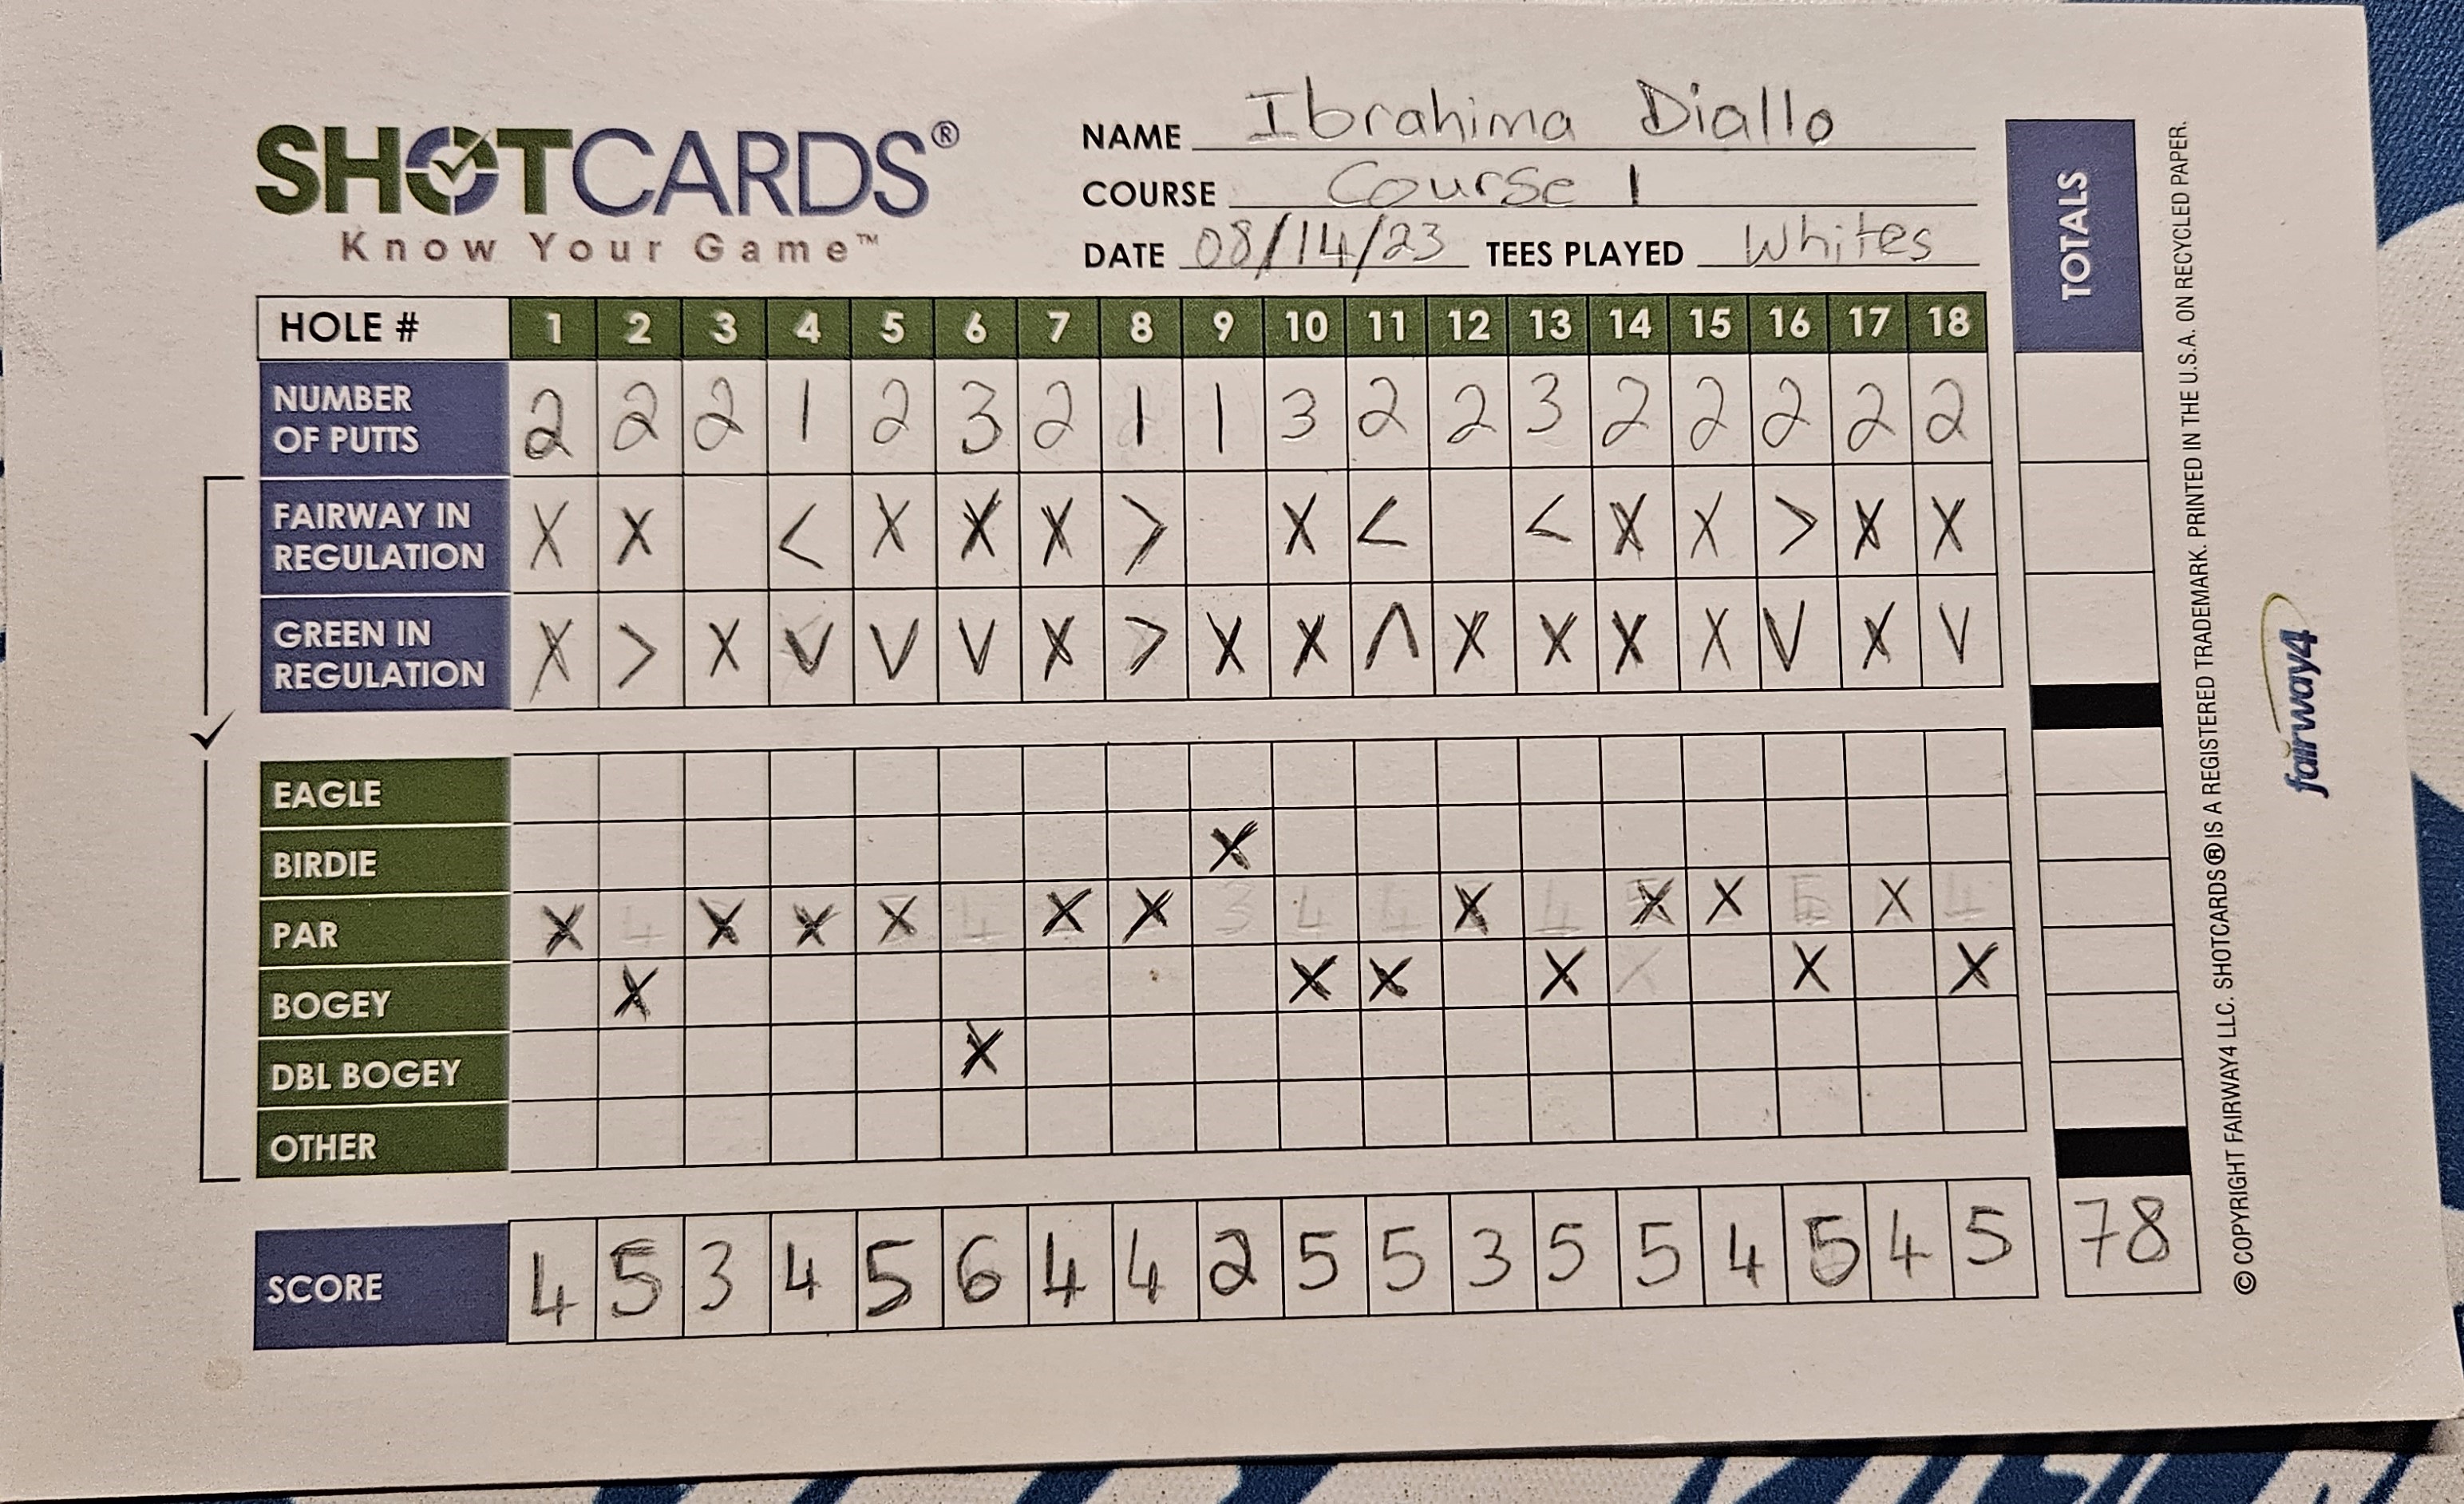 SHOTCARDS®
Know Your Game™
NAME Ibrahima Diallo
COURSE Course 1
DATE 08/14/23 TEES PLAYED Whites
HOLE # 1 2 3 4 5 6 7 8 9 10 11 12 13 14 15 16 17 18 TOTALS
NUMBER OF PUTTS 2 2 2 1 2 3 2 1 1 3 2 2 3 2 2 2 2 2
FAIRWAY IN REGULATION X X < X X X > X < < X X > X X
GREEN IN REGULATION X > X V V V X > X X Λ X X X X V X V
EAGLE
BIRDIE X
PAR X 4 X X X 4 X X 3 4 4 X 4 X X X 4
BOGEY X X X X X X
DBL BOGEY X
OTHER
SCORE 4 5 3 4 5 6 4 4 2 5 5 3 5 5 4 5 4 5 78
© COPYRIGHT FAIRWAY4 LLC. SHOTCARDS® IS A REGISTERED TRADEMARK. PRINTED IN THE U.S.A. ON RECYCLED PAPER.
fairway4